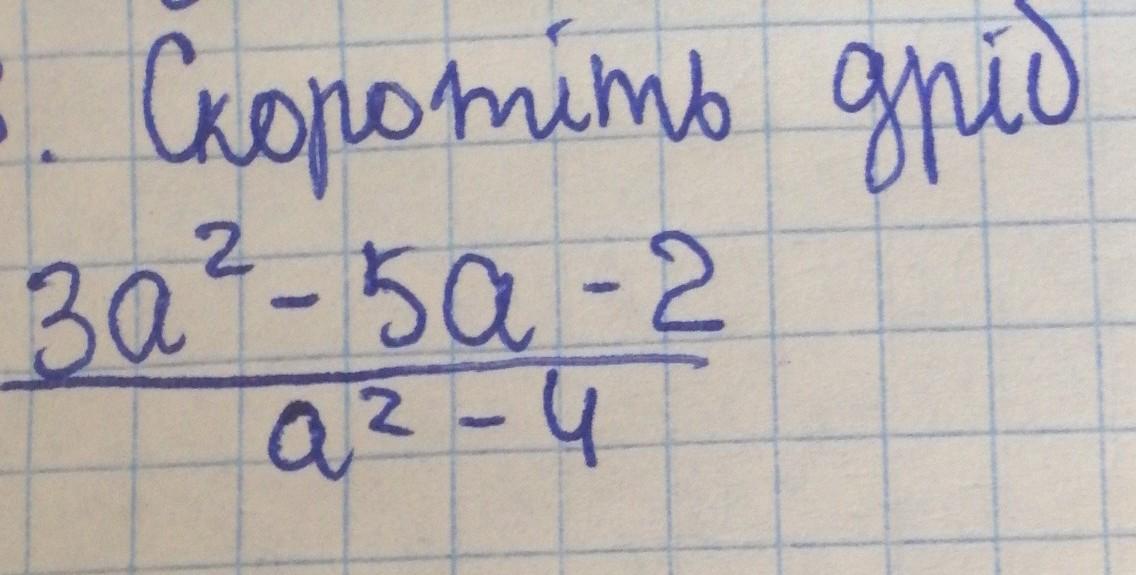 . Скоротіть дріб
3a² - 5a - 2
a² - 4